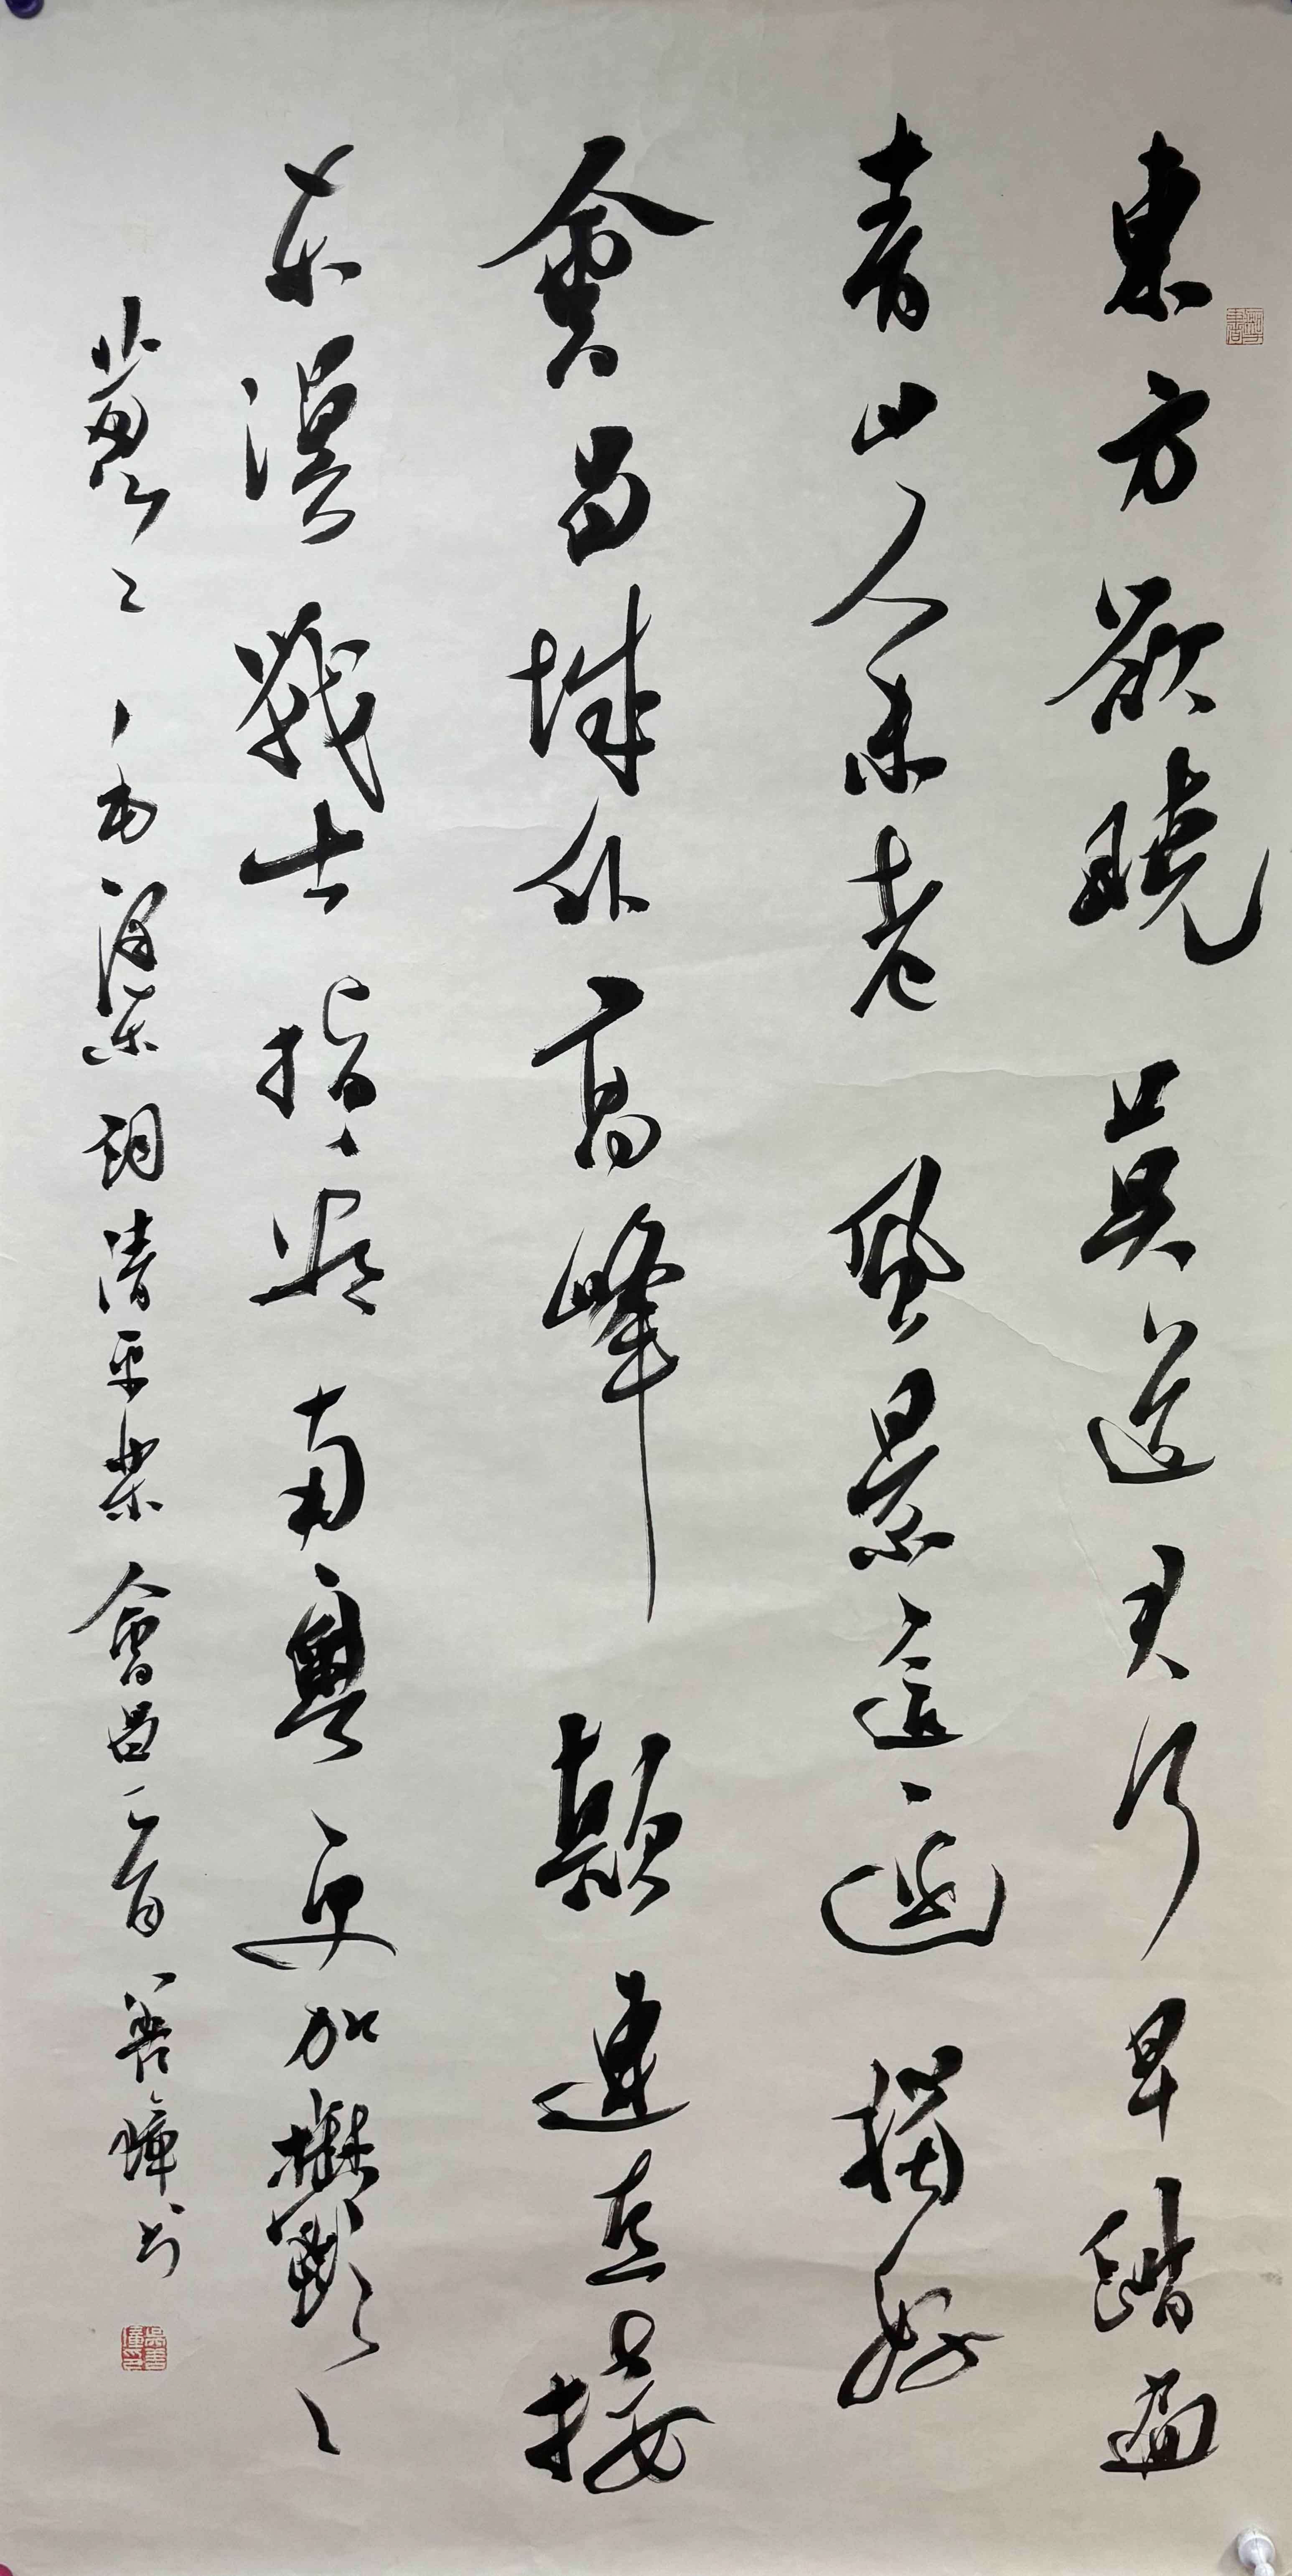 東方欲曉莫道君行早踏遍
青山人未老風景這邊獨好
會昌城外高峰顛連直接
东溟戰士指看南粵更加鬱々
蔥々毛澤东詞清平樂會昌一首善璋书